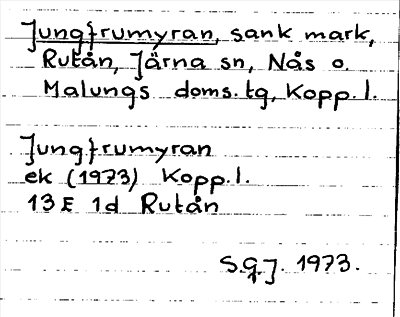 Jungfrumyran, sank mark,
Rutån, Järna sn, Nås o.
Malungs doms.tg, Kopp.l.
Jungfrumyran
ek (1973) Kopp.l.
13 E 1d Rutån
S.G.J. 1973.